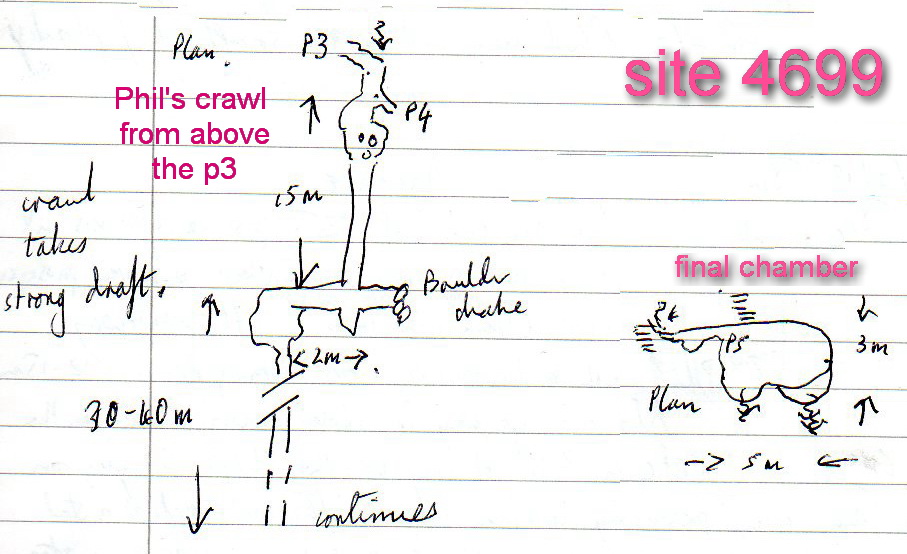 Plan.
P3
site 4699
Phil's crawl
from above
the p3
P4
15m
crawl
takes
strong draft.
Boulder
choke
final chamber
P5
3m
2m
Plan
30-40m
5m
continues